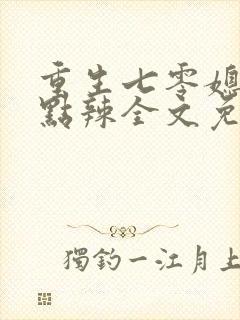 重生七零媳
點辣全文免
獨釣一江月上